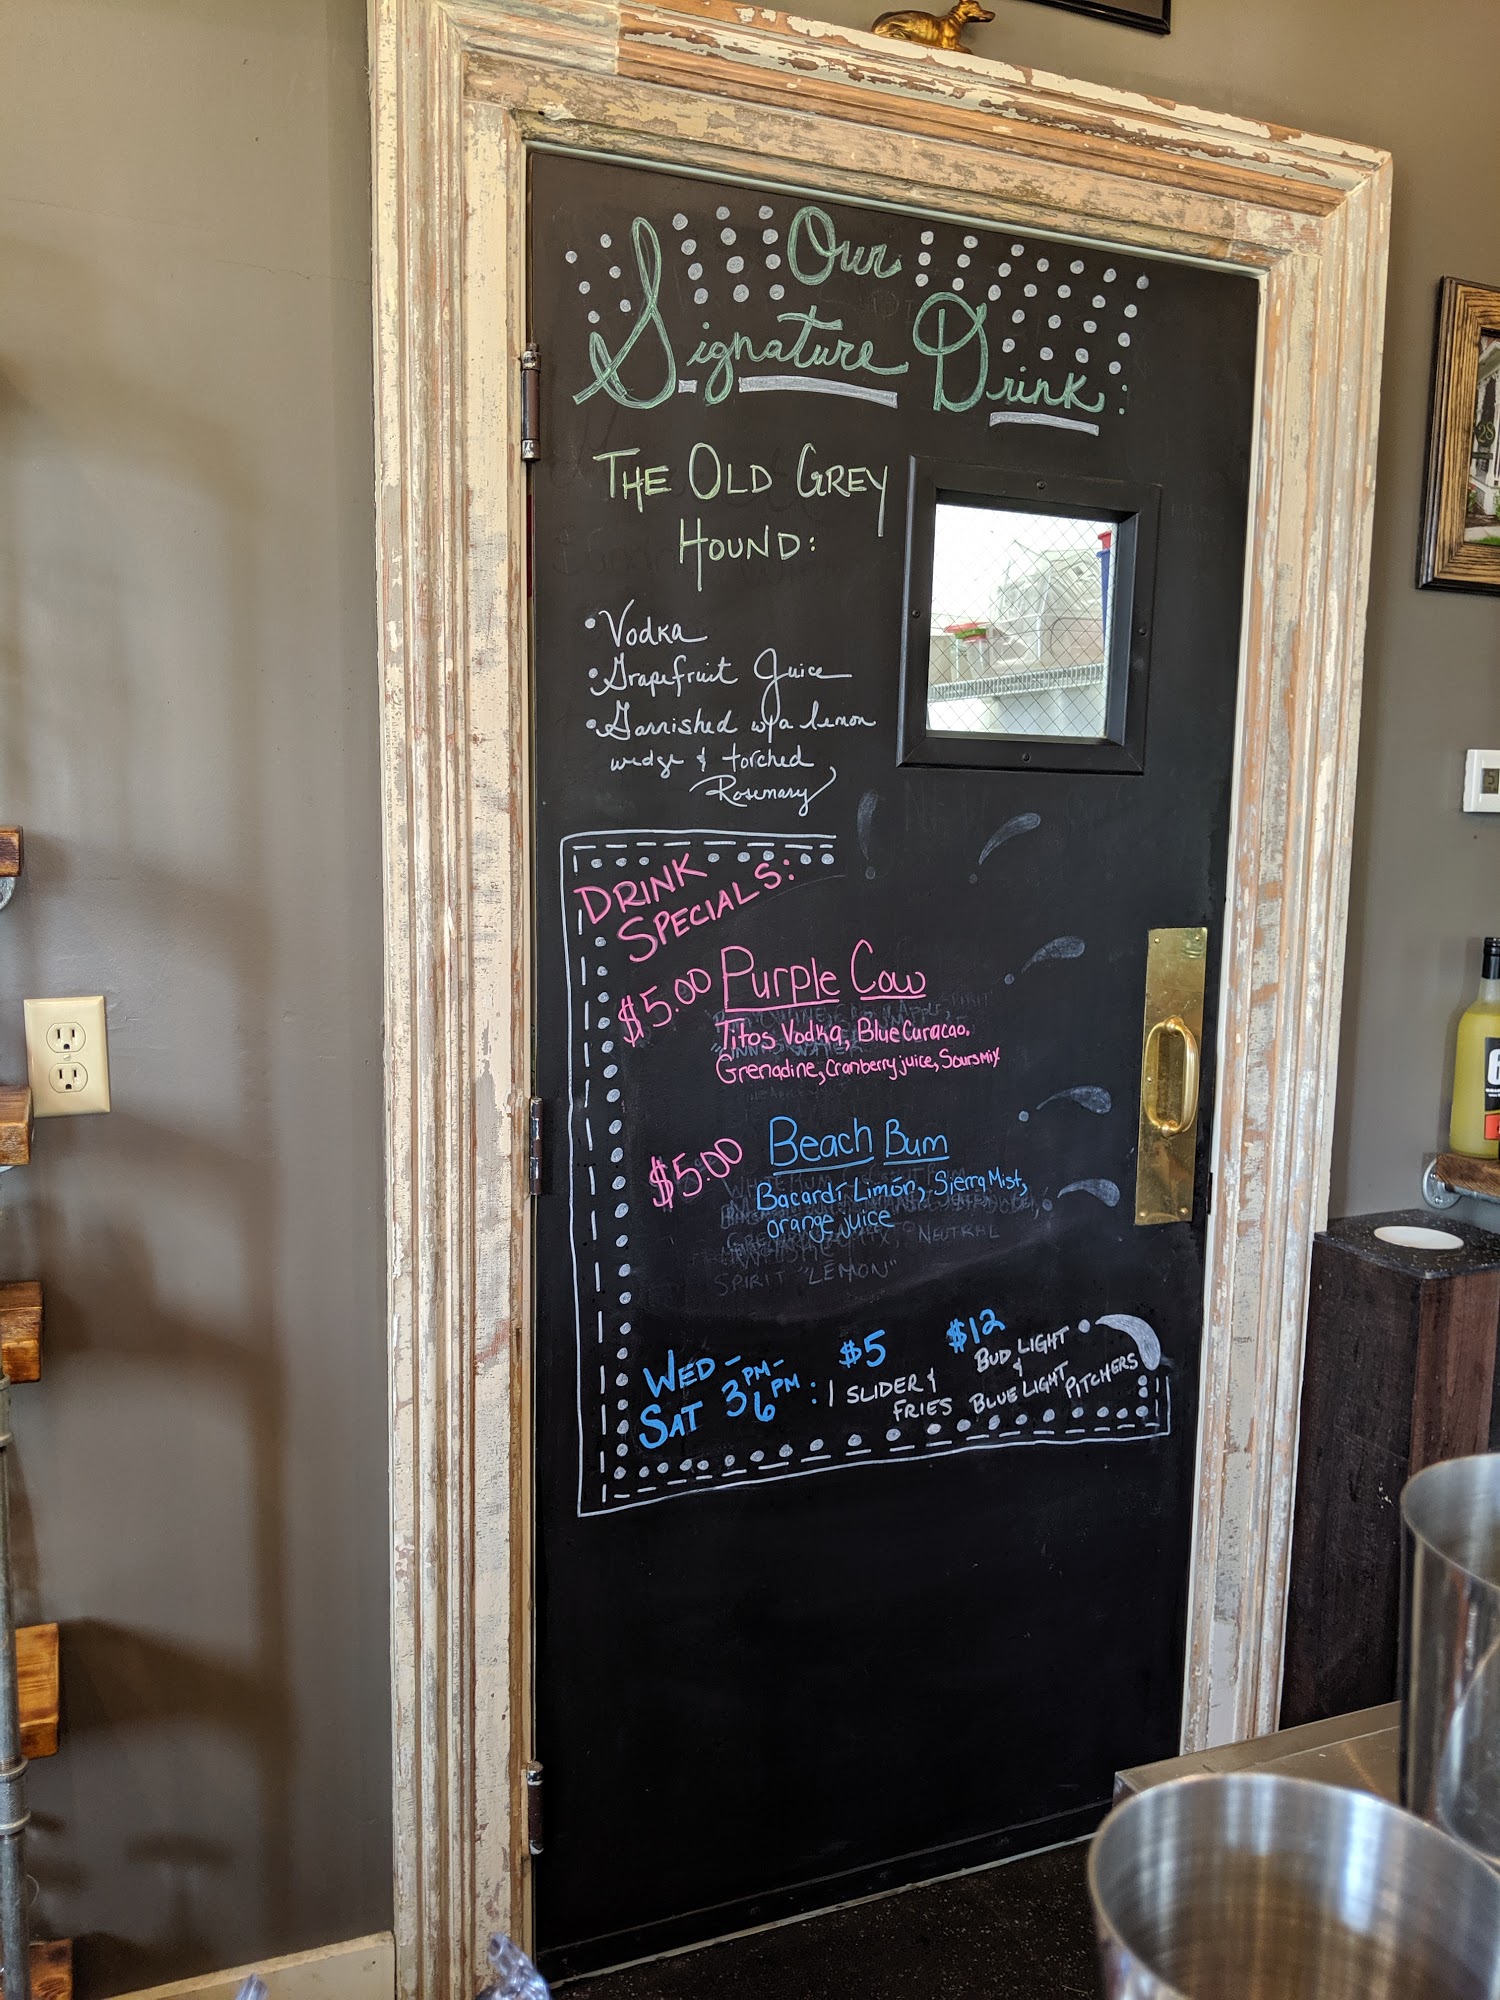 Our
Signature Drink:
THE OLD GREY
HOUND:
• Vodka
• Grapefruit Juice
• Garnished w/a lemon
wedge & torched
Rosemary
DRINK
SPECIALS:
$5.00 Purple Cow
Titos Vodka, Blue Curacao.
Grenadine, Cranberry juice, Sours Mix
$5.00 Beach Bum
Bacardí Limón, Sierra Mist,
orange juice
SPIRIT "LEMON"
WED - SAT 3PM - 6PM:
$5
1 SLIDER &
FRIES
$12
BUD LIGHT
&
BLUE LIGHT PITCHERS
28